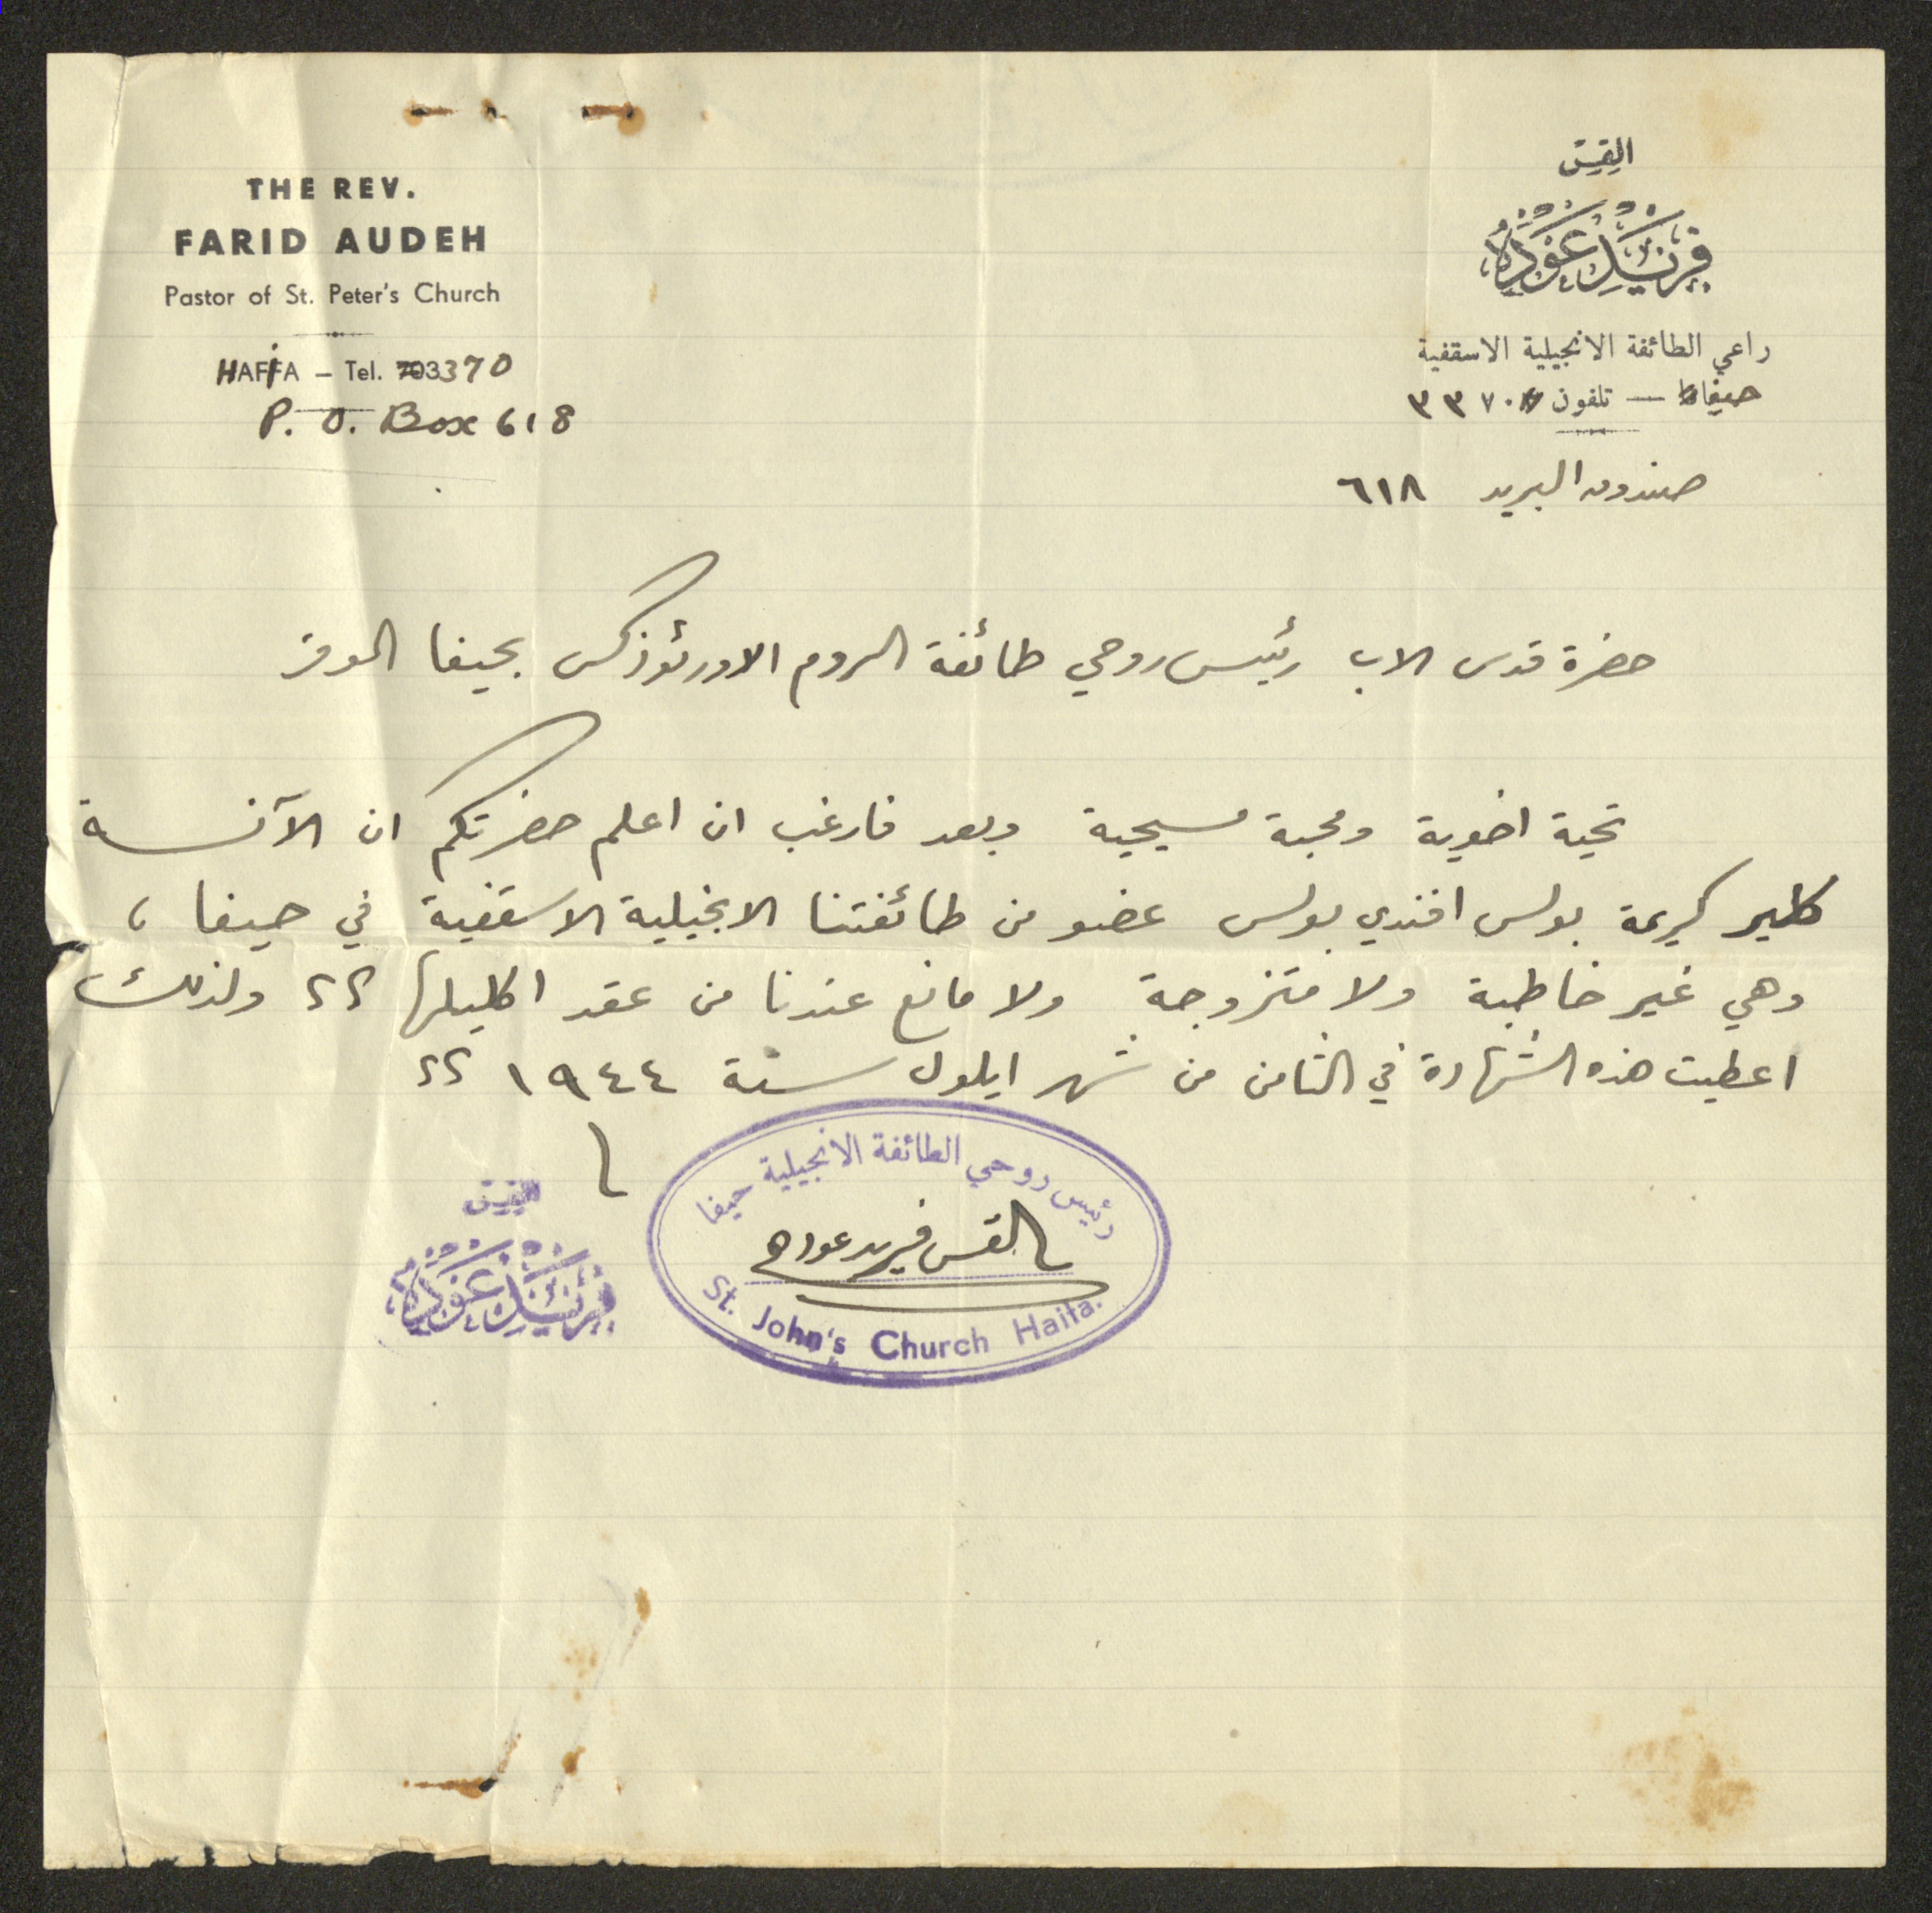 THE REV.
FARID AUDEH
Pastor of St. Peter's Church
HAIFA – Tel. 3370
P. O. Box 618
القس
فريد عوده
راعي الطائفة الانجيلية الاسقفية
حيفا — تلفون ٣٣٧٠
صندوق البريد ٦١٨
حضرة قدس الاب رئيس روحي طائفة الروم الاورثوذكس بحيفا الموقر
تحية اخوية ومحبة مسيحية وبعد فارغب ان اعلم حضرتكم ان الآنسة
كلير كريمة بولس افندي بولس عضو من طائفتنا الانجيلية الاسقفية في حيفا ،
وهي غير خاطبة ولا متزوجة ولا مانع عندنا من عقد اكليلها ولذلك
اعطيت هذه الشهادة في الثامن من شهر ايلول سنة ١٩٤٤
رئيس روحي الطائفة الانجيلية حيفا
القس فريد عوده
St. John's Church Haifa.
القس
فريد عوده